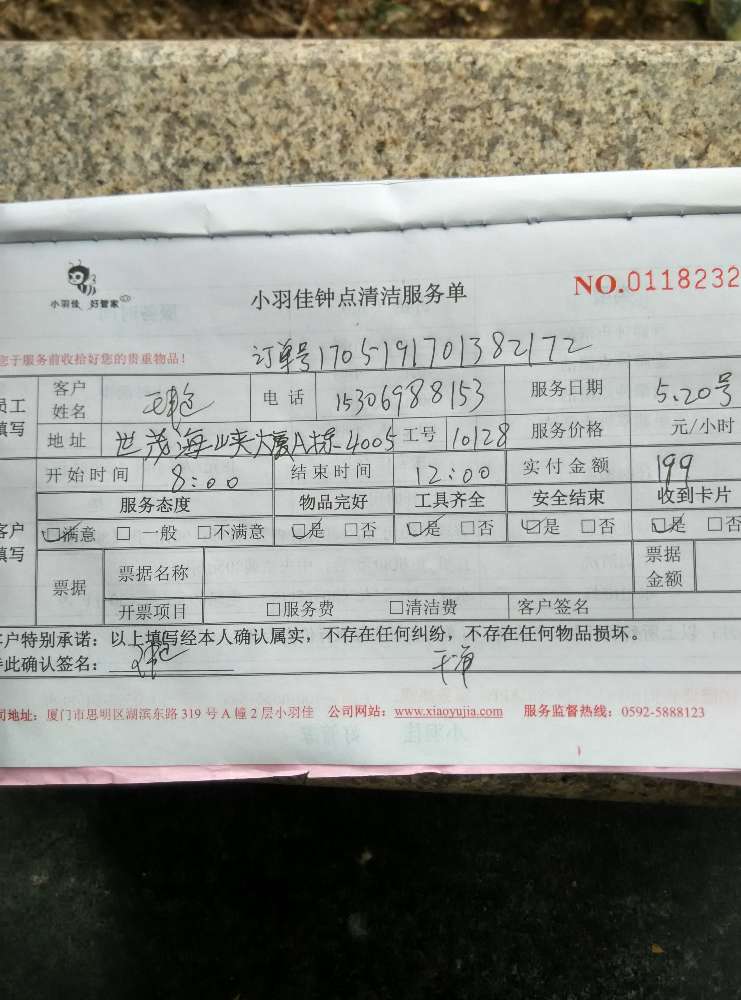 小羽佳 好管家
小羽佳钟点清洁服务单 NO.0118232
您于服务前收拾好您的贵重物品!
订单号1705191701382172
员工填写 客户姓名 电话 15306988153 服务日期 5.20号
地址 世茂海峡大厦A栋-4005 工号 10128 服务价格 元/小时
开始时间 8:00 结束时间 12:00 实付金额 199
服务态度 物品完好 工具齐全 安全结束 收到卡片
客户填写 ☑满意 □一般 □不满意 ☑是 □否 ☑是 □否 ☑是 □否 ☑是 □否
票据 票据名称 票据金额
开票项目 □服务费 □清洁费 客户签名
客户特别承诺：以上填写经本人确认属实，不存在任何纠纷，不存在任何物品损坏。
此确认签名： 干净
司地址：厦门市思明区湖滨东路 319 号 A 幢 2 层小羽佳 公司网站：www.xiaoyujia.com 服务监督热线：0592-5888123